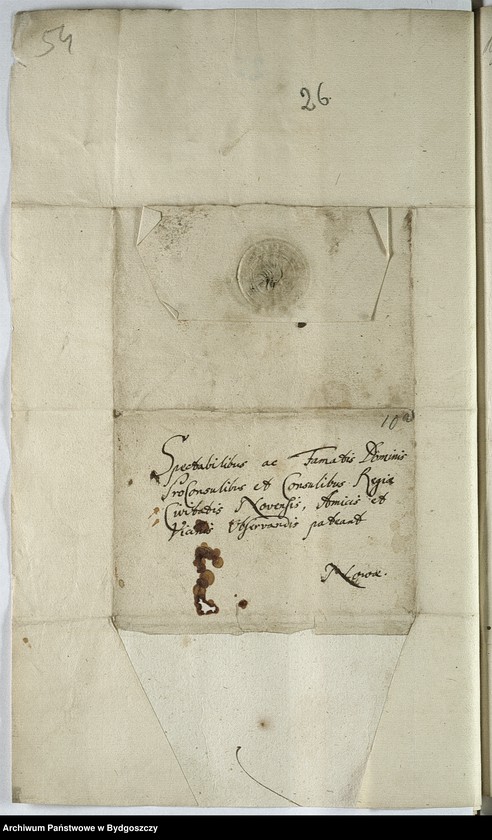 54
26.
10
Spectabilibus ac Famatis Dominis
ProConsulibus et Consulibus Regiæ
Civitatis Novensis, Amicis et
Vicinis Observandis pateant
Novæ.
Archiwum Państwowe w Bydgoszczy